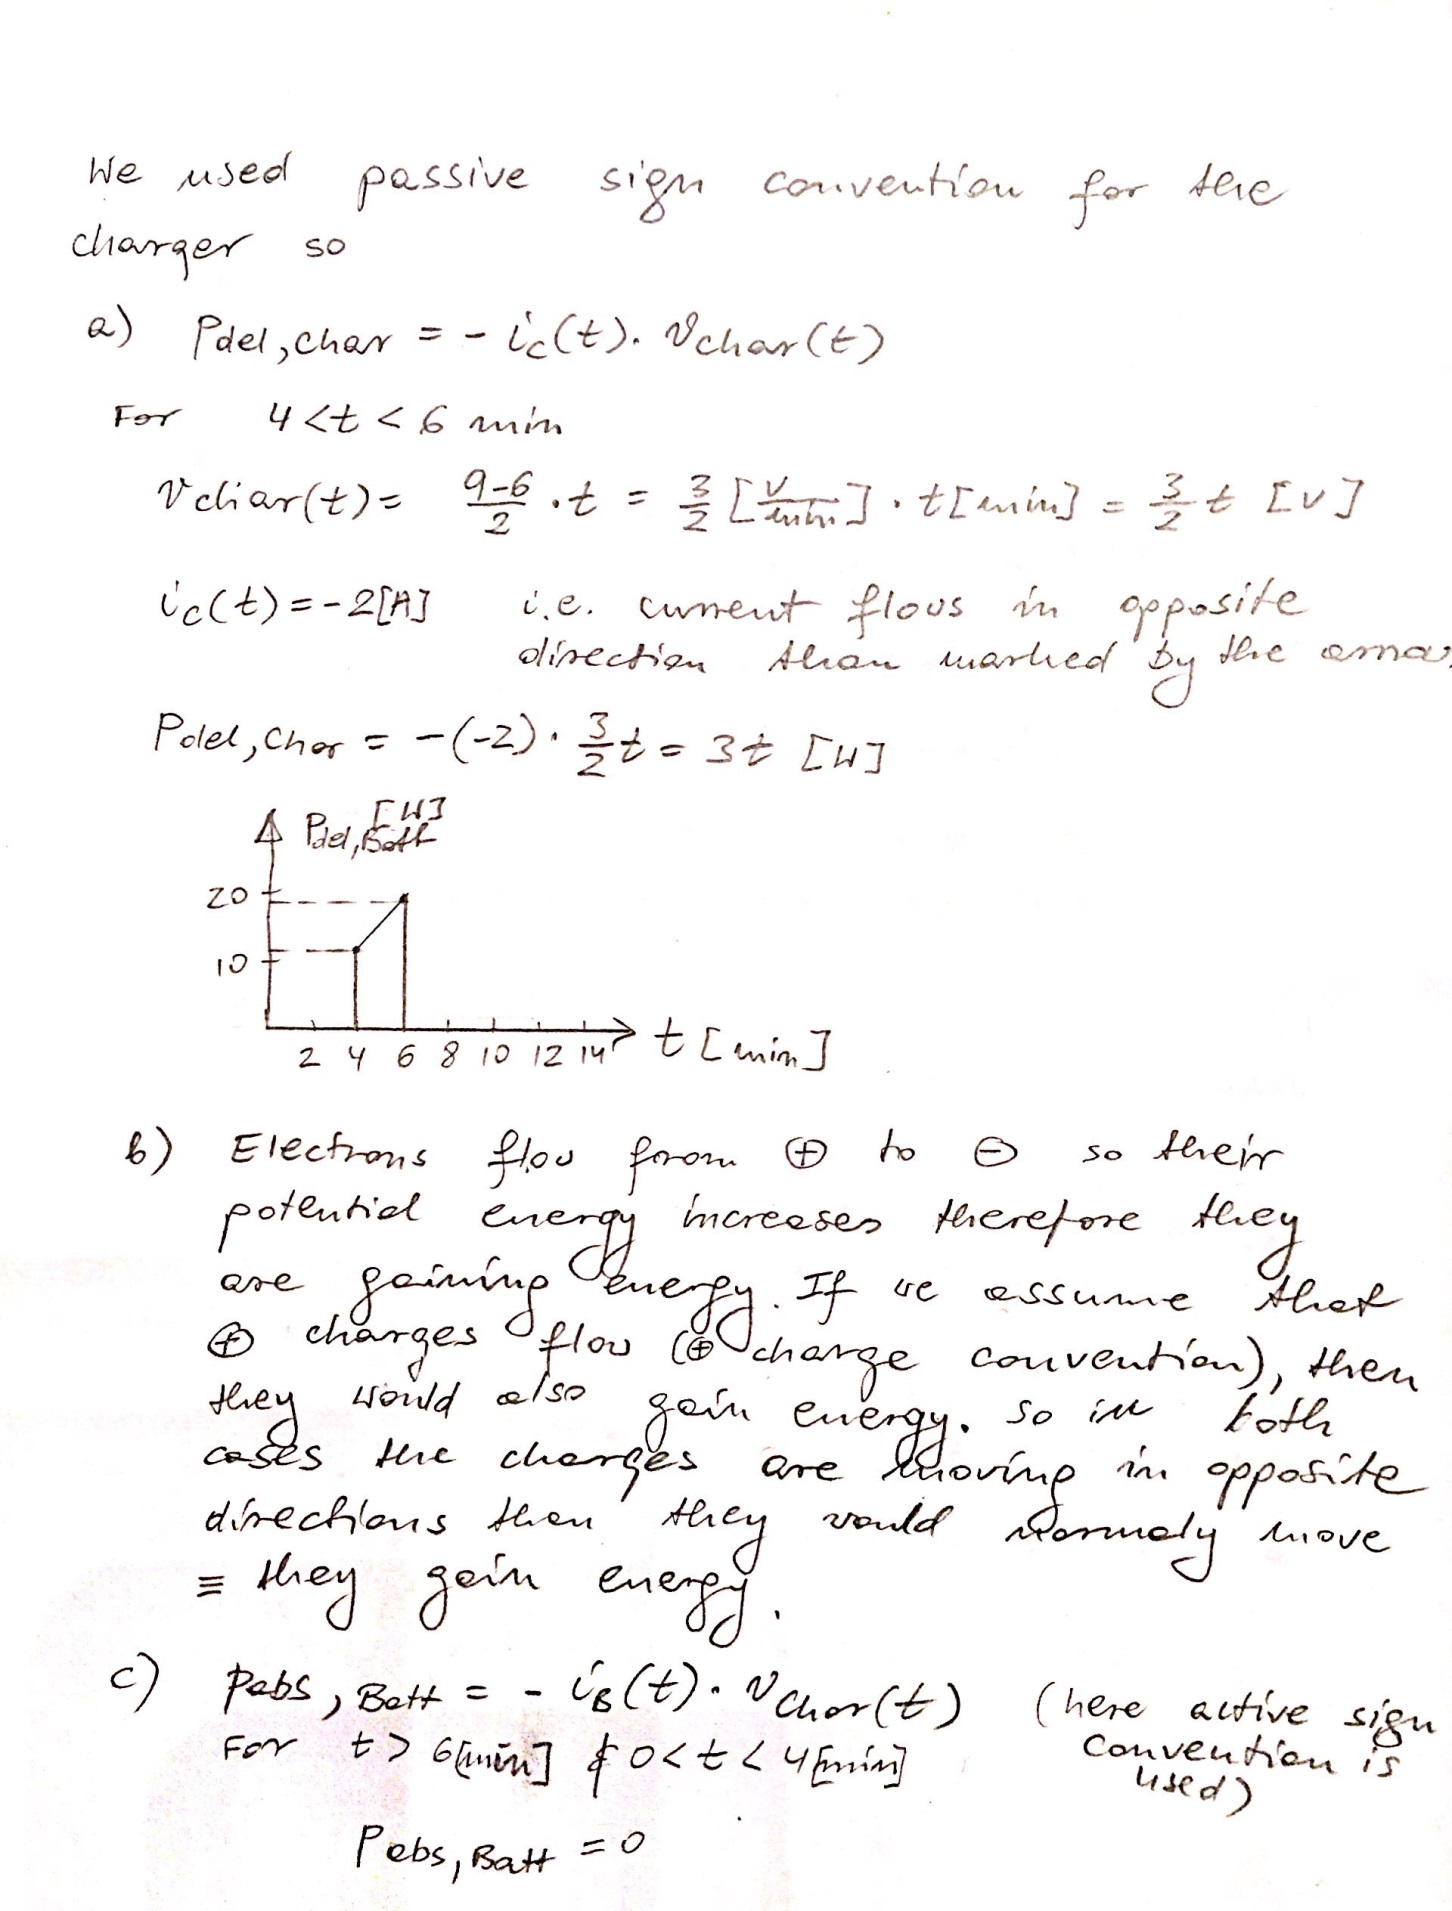 We used passive sign convention for the
charger so
a) Pdel,char = - ic(t). Vchar(t)
For 4<t<6 min
Vchar(t)= 9-6/2 .t = 3/2 [V/min] . t[min] = 3/2 t [V]
ic(t)=-2[A] i.e. current flows in opposite
direction than marked by the
Pdel,char = -(-2). 3/2 t = 3t [W]
Pdel,Batt [W]
20
10
2 4 6 8 10 12 14 t [min]
b) Electrons flow from ⊕ to ⊖ so their
potential energy increases therefore they
are gaining energy. If we assume that
⊕ charges flow (⊕ charge convention), then
they would also gain energy. So in both
cases the charges are moving in opposite
directions than they would normaly move
≡ they gain energy.
c) Pabs, Batt = - iB(t). Vchar(t) (here active sign
convention is
used)
For t > 6[min] & 0<t<4[min]
Pabs, Batt = 0